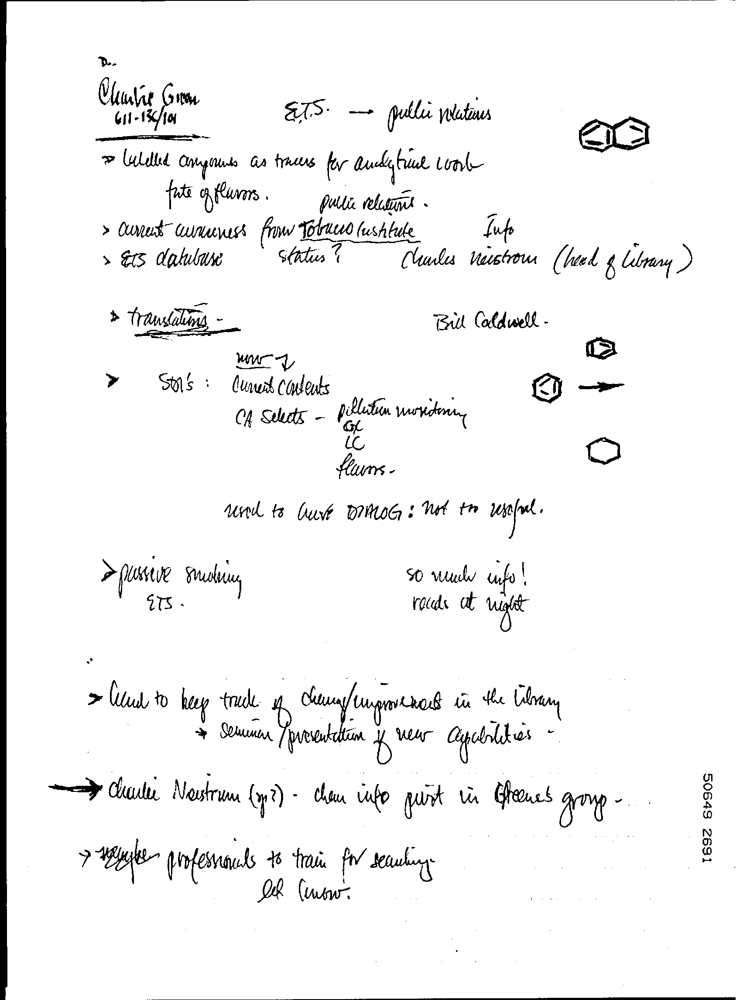 D..
Charlie Green
611-13C/101
E.T.S. → public relations
> labelled compounds as tracers for analytical work
fate of flavors.
public relations.
> current awareness from Tobacco Institute Info
> ETS database status? Charles Neistrom (head of library)
> translations - Bill Caldwell.
now
> SDI's : Current Contents
CA Selects - pollution monitoring
GC
LC
flavors -
used to have DIALOG: not too useful.
> passive smoking so much info!
ETS. reads at night
> hard to keep track of changes/improvements in the library
→ seminar/presentation of new capabilities -
→ Charlie Neistrum (sp?) - chem info point in Greene's group -
→ maybe professionals to train for searching
let know.
50649 2691